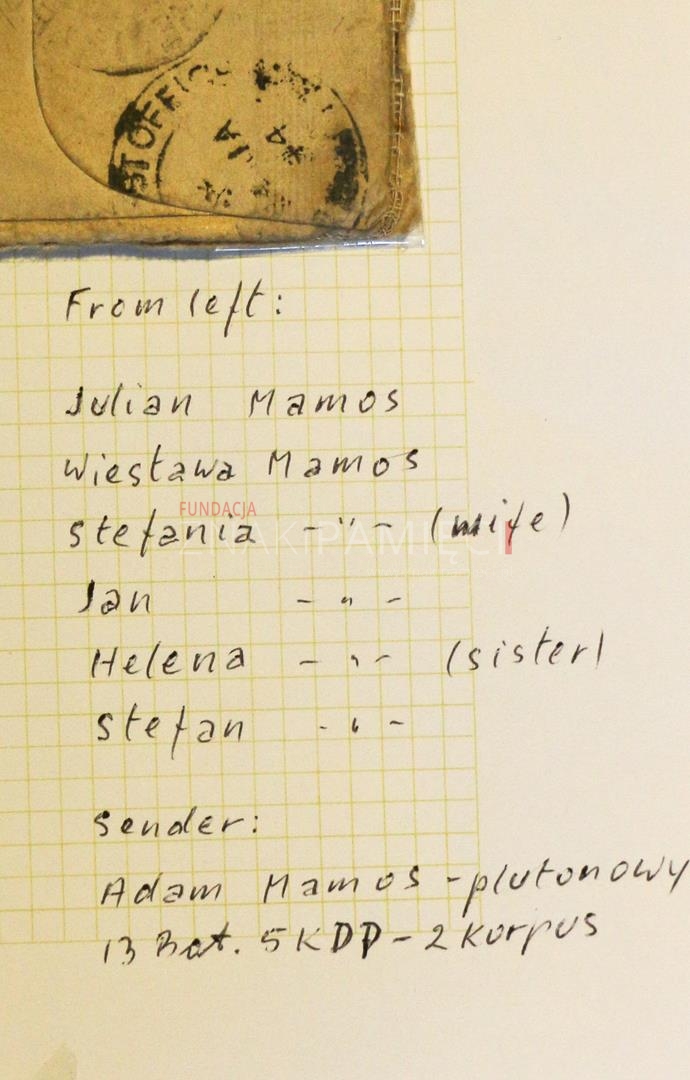 ST OFFICE
IA
From left:
Julian Mamos
Wiesława Mamos
FUNDACJA
Stefania -"- (wife)
ZNAKI PAMIĘCI
Jan -"-
Helena -"- (sister)
Stefan -"-
Sender:
Adam Mamos - plutonowy
13 Bat. 5 KDP - 2 Korpus